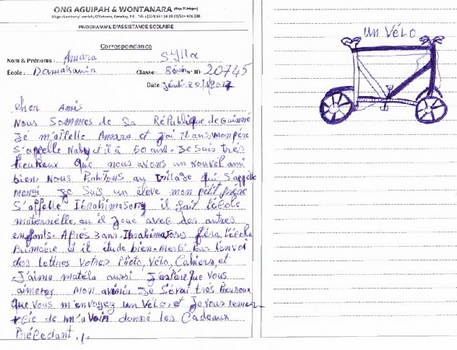 ONG AGUIPAH & WONTANARA
PROGRAMME D'ASSISTANCE SCOLAIRE
Correspondance
Nom & Prénoms : Amara Sylla
Ecole : Domakania Classe : ID 20745
Date
UN VÉLO
cher Ami
Nous Sommes de la République de Guinée
Je m'apelle Amara et j'ai 11 ans mon père
s'appelle Naby et il à 60 ans. Je suis très
heureux que nous avons un nouvel ami
bien. Nous habitons au village qui s'appelle
Je Suis un élève mon petit frère
s'appelle Ibrahima Sory il fait l'école
maternelle ou il joue avec des autres
enfants. Après 3 ans Ibrahima Sory fera l'école
Primaire et il étude bien. Merci Pour l'envoi
des lettres votres Photo, Vélo, Cahiers, et
J'aime aussi J'espère que vous
aimerez Mon Je Serai très heureux
que vous m'envoyez un Vélo et Je vous remer-
cie de m'avoir donné les Cadeaux
Précedant.